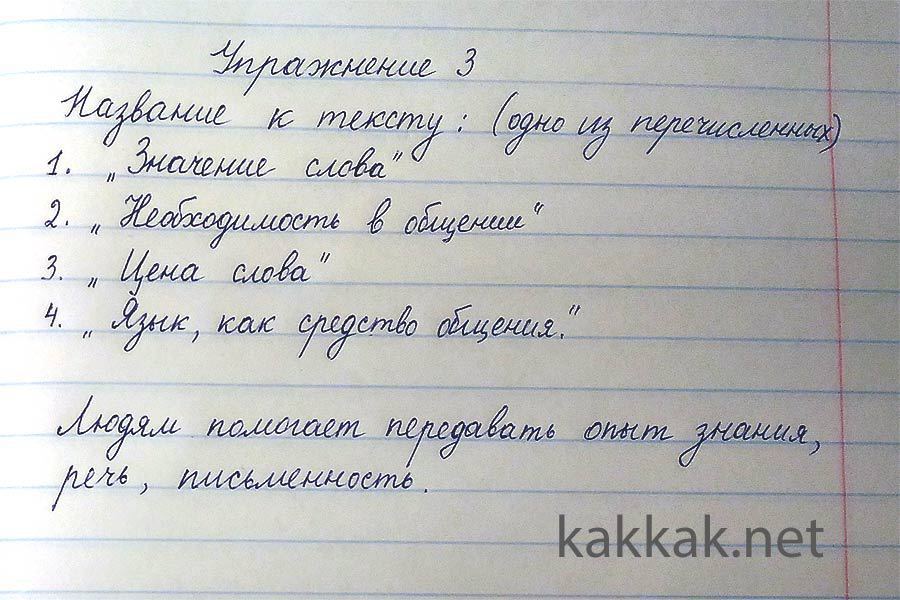 Упражнение 3
Название к тексту: (одно из перечисленных)
1. „Значение слова"
2. „Необходимость в общении"
3. „Цена слова"
4. „Язык, как средство общения."
Людям помогает передавать опыт знания,
речь, письменность.
kakkak.net